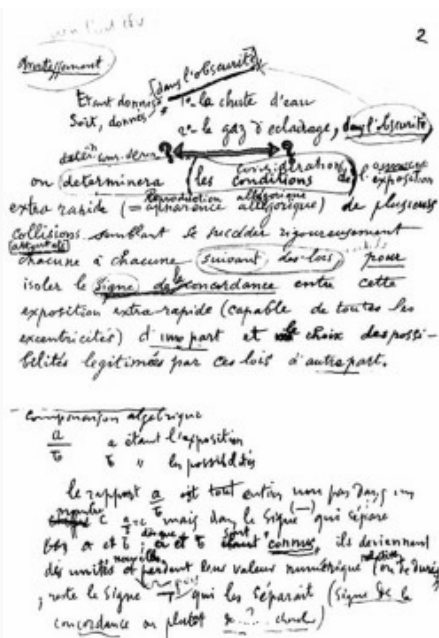 2
Avertissement
dans l'obscurité
Etant donnés 1° la chute d'eau
Soit, donnés, 2° le gaz d'éclairage, dans l'obscurité
? ?
considérations
on determinera (les conditions de) l'exposition
Reproduction allégorique
extra rapide (= apparence allégorique) de plusieurs
collisions semblant se succéder rigoureusement
attentats
chacune à chacune suivant des lois, pour
isoler le signe de la concordance entre cette
exposition extra-rapide (capable de toutes les
excentricités) d'une part et le choix des possi-
bilités legitimées par ces lois d'autre part.
- Comparaison algébrique
a a étant l'exposition
b b " les possibilités
le rapport a/b est tout entier non pas dans un
nombre c a/b = c mais dans le signe (—) qui sépare
a et b dès que a et b sont connus, ils deviennent
nouvelles
des unités et perdent leur valeur numérique relative (ou de durée)
, reste le signe — qui les séparait (signe de la
concordance ou plutôt de ..?.. cherch)